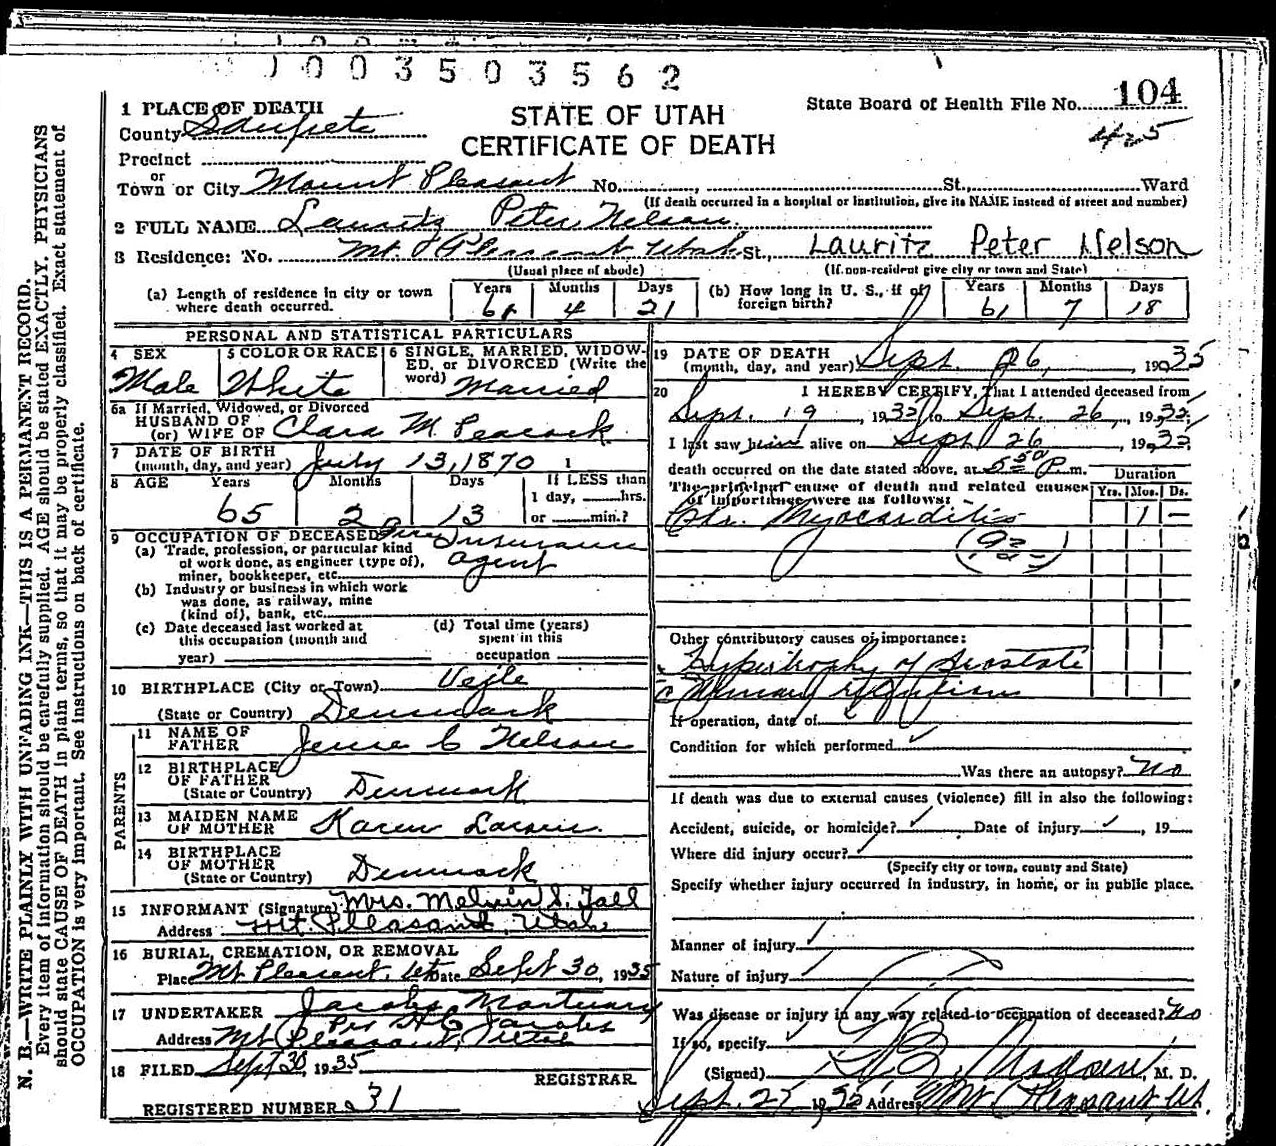 1003503562
1 PLACE OF DEATH
County Sanpete
STATE OF UTAH
CERTIFICATE OF DEATH
State Board of Health File No. 104
425
Precinct
or
Town or City Mount Pleasant No. , St., Ward
(If death occurred in a hospital or institution, give its NAME instead of street and number)
2 FULL NAME Lauritz Peter Nelson
3 Residence: No. Mt. Pleasant Utah St., Lauritz Peter Nelson
(Usual place of abode) (If non-resident give city or town and State)
(a) Length of residence in city or town where death occurred. Years 61 Months 4 Days 21
(b) How long in U. S., if of foreign birth? Years 61 Months 7 Days 18
PERSONAL AND STATISTICAL PARTICULARS
4 SEX Male
5 COLOR OR RACE White
6 SINGLE, MARRIED, WIDOWED, or DIVORCED (Write the word) Married
6a If Married, Widowed, or Divorced
HUSBAND OF
(or) WIFE OF Clara M. Peacock
7 DATE OF BIRTH
(month, day, and year) July 13, 1870
8 AGE Years 65 Months 2 Days 13 If LESS than 1 day, hrs. or min.?
9 OCCUPATION OF DECEASED Fire Insurance
(a) Trade, profession, or particular kind of work done, as engineer (type of), miner, bookkeeper, etc. agent
(b) Industry or business in which work was done, as railway, mine (kind of), bank, etc.
(c) Date deceased last worked at this occupation (month and year)
(d) Total time (years) spent in this occupation
10 BIRTHPLACE (City or Town) Vejle
(State or Country) Denmark
PARENTS
11 NAME OF FATHER Jense C Nelson
12 BIRTHPLACE OF FATHER
(State or Country) Denmark
13 MAIDEN NAME OF MOTHER Karen
14 BIRTHPLACE OF MOTHER
(State or Country) Denmark
15 INFORMANT (Signature) Mrs. Melvin S. Fall
Address Mt. Pleasant, Utah
16 BURIAL, CREMATION, OR REMOVAL
Place Mt Pleasant, Ut Date Sept 30, 1935
17 UNDERTAKER Jacobs Mortuary
Per H C Jacobs
Address Mt Pleasant, Utah
18 FILED Sept 30, 1935
REGISTRAR
REGISTERED NUMBER 31
19 DATE OF DEATH
(month, day, and year) Sept. 26, 1935
20 I HEREBY CERTIFY, That I attended deceased from
Sept. 19, 1935 to Sept. 26, 1935
I last saw him alive on Sept 26 1935
death occurred on the date stated above, at 5:50 P. m.
The principal cause of death and related causes of importance were as follows:
Duration
Yrs. Mos. Ds.
Chr. Myocarditis 1 -
Other contributory causes of importance:
Hypertrophy of Prostate
c Urinary
If operation, date of
Condition for which performed
Was there an autopsy? No
If death was due to external causes (violence) fill in also the following:
Accident, suicide, or homicide? Date of injury , 19
Where did injury occur?
(Specify city or town, county and State)
Specify whether injury occurred in industry, in home, or in public place.
Manner of injury
Nature of injury
Was disease or injury in any way related to occupation of deceased? No
If so, specify
(Signed) Madsen, M. D.
Sept. 27, 1935 Address Mt. Pleasant, Ut.
N. B.—WRITE PLAINLY WITH UNFADING INK—THIS IS A PERMANENT RECORD.
Every item of information should be carefully supplied. AGE should be stated EXACTLY. PHYSICIANS
should state CAUSE OF DEATH in plain terms, so that it may be properly classified. Exact statement of
OCCUPATION is very important. See instructions on back of certificate.